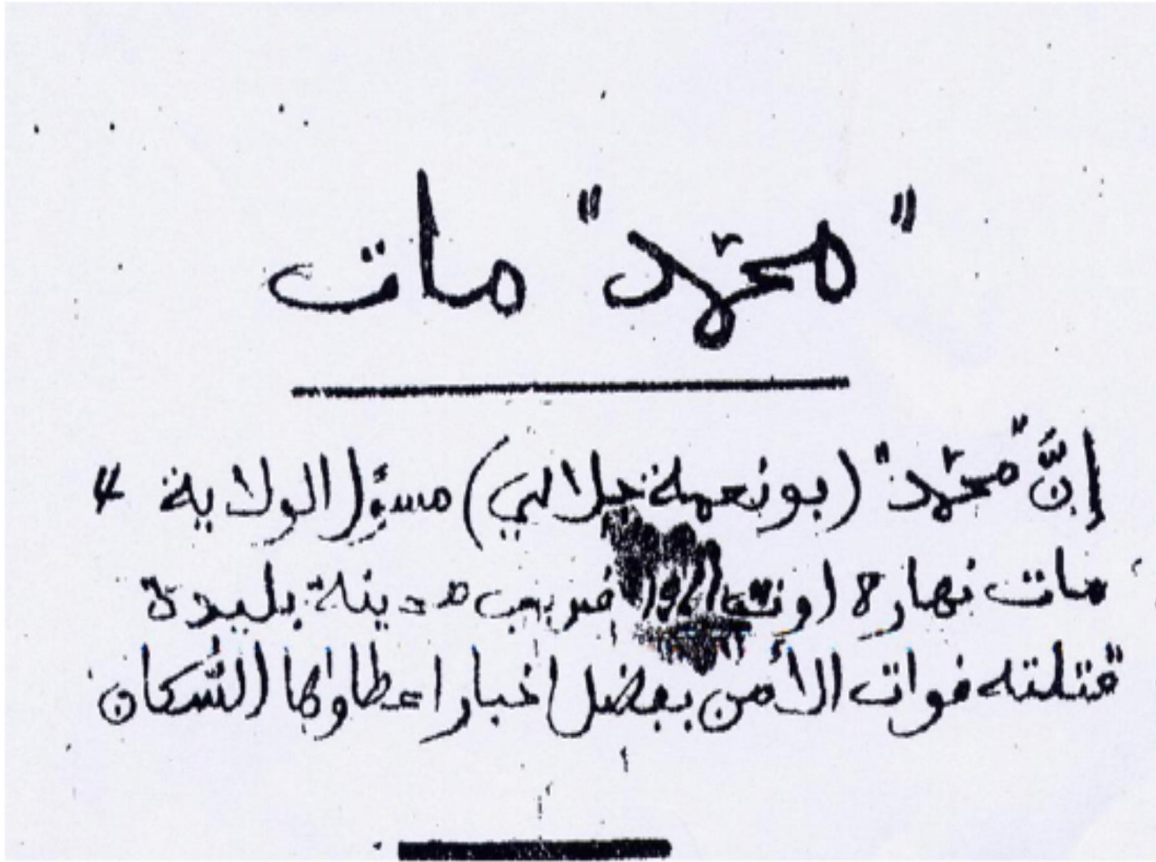 "محمّد" مات
إنَّ "محمّد" (بونعمة جلالي) مسؤل الولاية 4
مات نهار 8 اوت 1961 قريب مدينة بليدة
قتلته قوات الأمن بفضل اخبار اعطاوها السُّكان